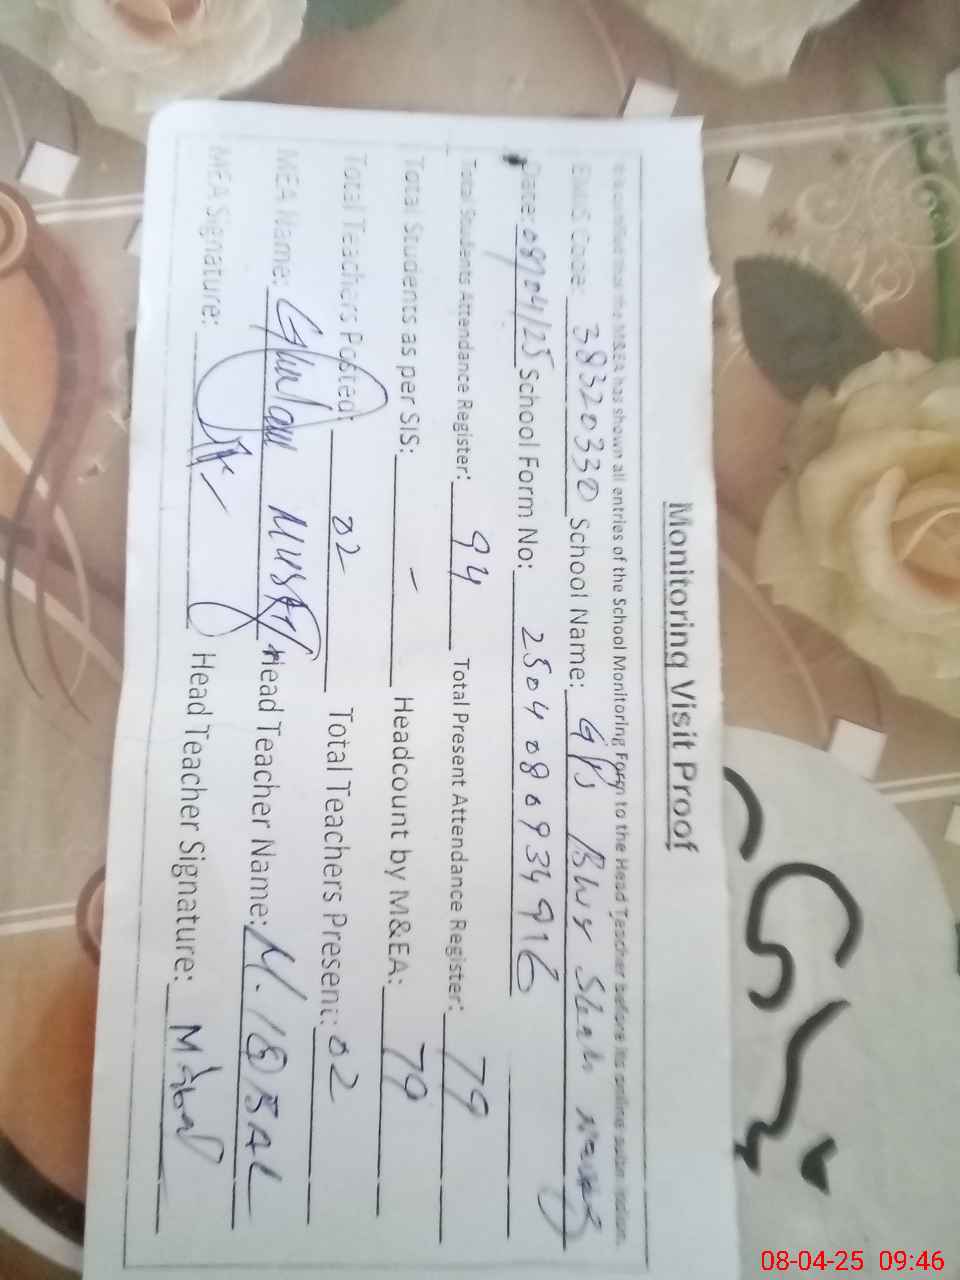 Monitoring Visit Proof
It is certified that the M&EA has shown all entries of the School Monitoring Form to the Head Teacher before its online submission.
EMIS Code: 38320330 School Name: GPS Bhy Shah
Date: 08/04/25 School Form No: 2504080934916
Total Students Attendance Register: 94 Total Present Attendance Register: 79
Total Students as per SIS: - Headcount by M&EA: 79
Total Teachers Posted: 02 Total Teachers Present: 02
MEA Name: Ghulam Head Teacher Name: M. IQBAL
MEA Signature: Head Teacher Signature: M Iqbal
08-04-25 09:46